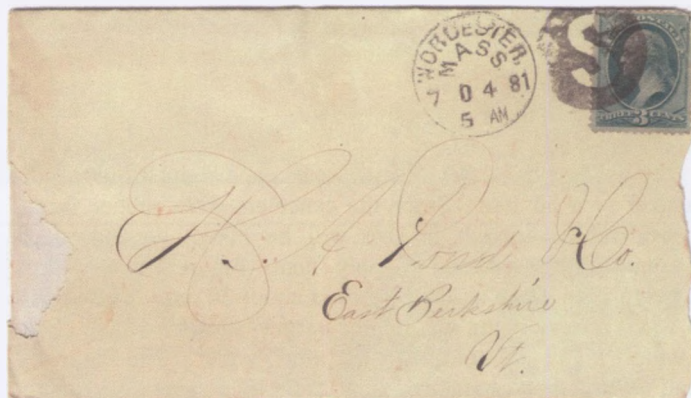 WORCESTER,
MASS
7 D 4 81
5 AM
S
THREE 3 CENTS
A. Pond & Co.
East Berkshire
Vt.